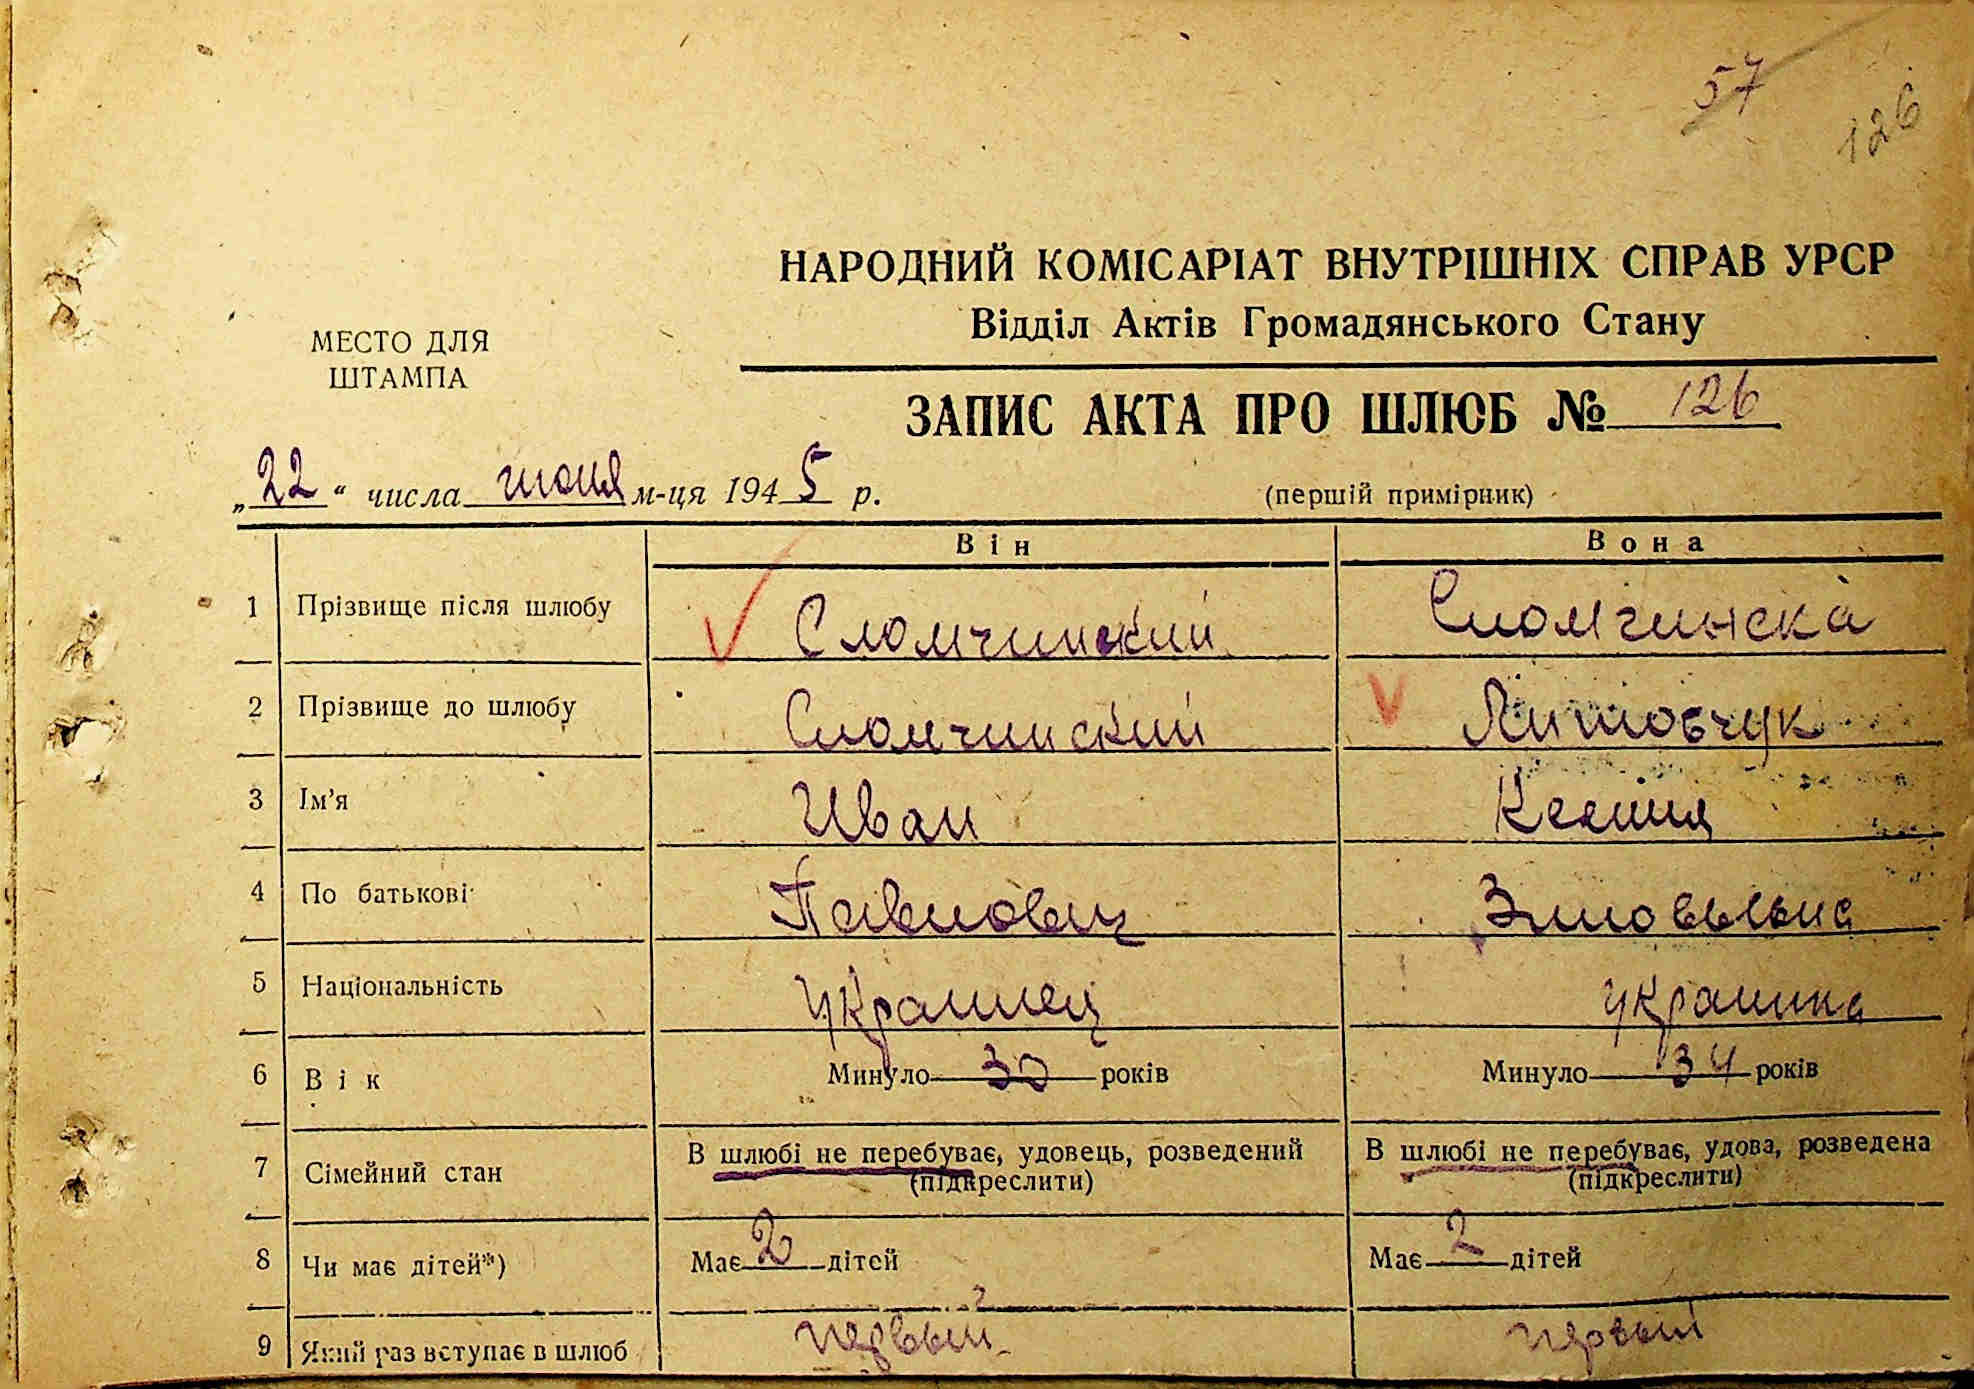 57
126
НАРОДНИЙ КОМІСАРІАТ ВНУТРІШНІХ СПРАВ УРСР
Відділ Актів Громадянського Стану
МЕСТО ДЛЯ
ШТАМПА
ЗАПИС АКТА ПРО ШЛЮБ № 126
„22“ числа июня м-ця 1945 р.
(першій примірник)
Він Вона
1 Прізвище після шлюбу Сломчинский Сломчинска
2 Прізвище до шлюбу Сломчинский Литовчук
3 Ім'я Иван Ксения
4 По батькові Павловц Зиновьевна
5 Національність украинец украинка
6 Вік Минуло 30 років Минуло 34 років
7 Сімейний стан В шлюбі не перебуває, удовець, розведений В шлюбі не перебуває, удова, розведена
(підкреслити) (підкреслити)
8 Чи має дітей*) Має 2 дітей Має 2 дітей
9 Який раз вступає в шлюб первый первый